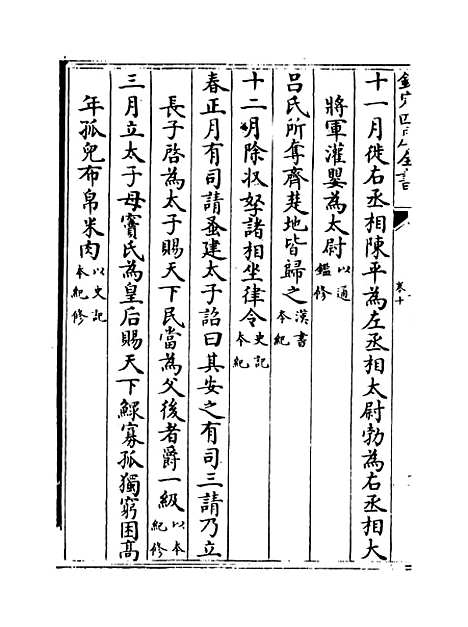 欽定四庫全書
卷十
十一月徙右丞相陳平為左丞相太尉勃為右丞相大
將軍灌嬰為太尉以通鑑修
呂氏所奪齊楚地皆歸之漢書本紀
十二月除收孥諸相坐律令史記本紀
春正月有司請蚤建太子詔曰其安之有司三請乃立
長子啓為太子賜天下民當為父後者爵一級以本紀修
三月立太子母竇氏為皇后賜天下鰥寡孤獨窮困高
年孤兒布帛米肉以史記本紀修